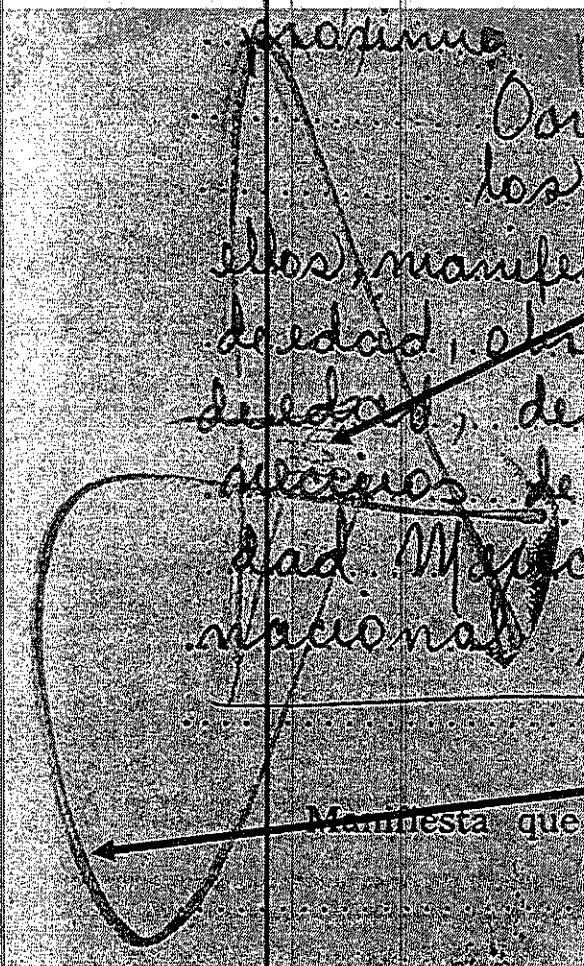 proximo
los
ellos, manife
de edad, obr
de edad, de
vecinos de
dad Mexic
nacional,
Manifiesta que